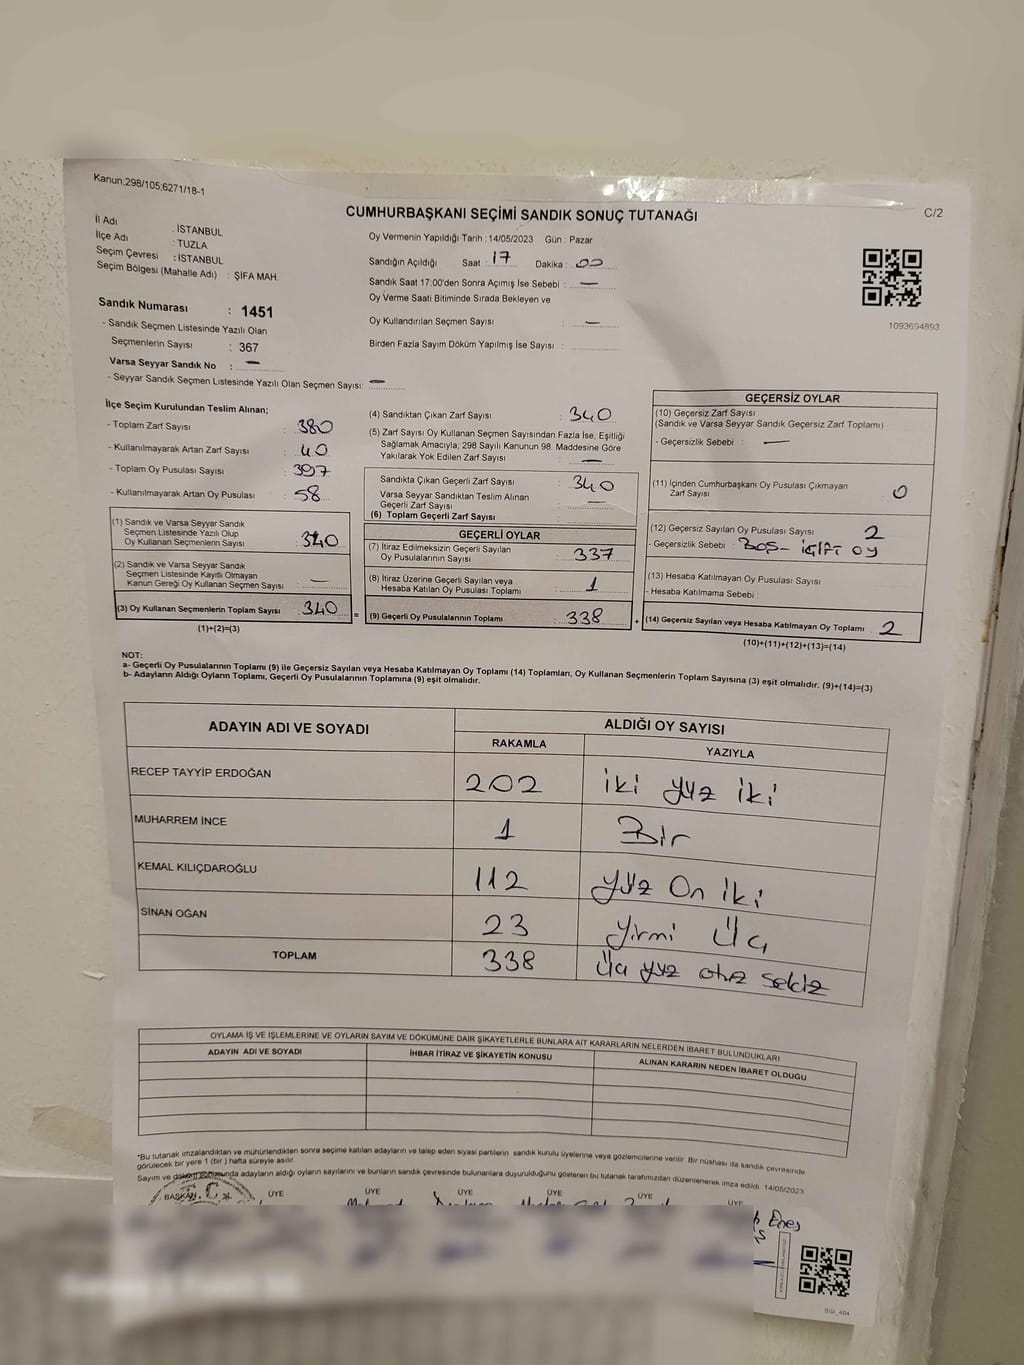 Kanun;298/105;6271/18-1
C/2
CUMHURBAŞKANI SEÇİMİ SANDIK SONUÇ TUTANAĞI
İl Adı : İSTANBUL
İlçe Adı : TUZLA
Seçim Çevresi : İSTANBUL
Seçim Bölgesi (Mahalle Adı) : ŞİFA MAH.
Oy Vermenin Yapıldığı Tarih : 14/05/2023 Gün : Pazar
Sandığın Açıldığı Saat : 17 Dakika : 00
Sandık Saat 17:00'den Sonra Açımış İse Sebebi : —
Oy Verme Saati Bitiminde Sırada Bekleyen ve
Oy Kullandırılan Seçmen Sayısı : —
Birden Fazla Sayım Döküm Yapılmış İse Sayısı :
1093694893
Sandık Numarası : 1451
- Sandık Seçmen Listesinde Yazılı Olan
Seçmenlerin Sayısı : 367
Varsa Seyyar Sandık No : —
- Seyyar Sandık Seçmen Listesinde Yazılı Olan Seçmen Sayısı: —
İlçe Seçim Kurulundan Teslim Alınan;
- Toplam Zarf Sayısı : 380
- Kullanılmayarak Artan Zarf Sayısı : 40
- Toplam Oy Pusulası Sayısı : 397
- Kullanılmayarak Artan Oy Pusulası : 58
(1) Sandık ve Varsa Seyyar Sandık
Seçmen Listesinde Yazılı Olup
Oy Kullanan Seçmenlerin Sayısı : 340
(2) Sandık ve Varsa Seyyar Sandık
Seçmen Listesinde Kayıtlı Olmayan
Kanun Gereği Oy Kullanan Seçmen Sayısı : —
(3) Oy Kullanan Seçmenlerin Toplam Sayısı : 340
(1)+(2)=(3)
(4) Sandıktan Çıkan Zarf Sayısı : 340
(5) Zarf Sayısı Oy Kullanan Seçmen Sayısından Fazla İse, Eşitliği
Sağlamak Amacıyla; 298 Sayılı Kanunun 98. Maddesine Göre
Yakılarak Yok Edilen Zarf Sayısı : —
Sandıkta Çıkan Geçerli Zarf Sayısı : 340
Varsa Seyyar Sandıktan Teslim Alınan
Geçerli Zarf Sayısı : —
(6) Toplam Geçerli Zarf Sayısı :
GEÇERLİ OYLAR
(7) İtiraz Edilmeksizin Geçerli Sayılan
Oy Pusulalarının Sayısı : 337
(8) İtiraz Üzerine Geçerli Sayılan veya
Hesaba Katılan Oy Pusulası Toplamı : 1
= (9) Geçerli Oy Pusulalarının Toplamı : 338
GEÇERSİZ OYLAR
(10) Geçersiz Zarf Sayısı
(Sandık ve Varsa Seyyar Sandık Geçersiz Zarf Toplamı)
- Geçersizlik Sebebi : —
(11) İçinden Cumhurbaşkanı Oy Pusulası Çıkmayan
Zarf Sayısı 0
(12) Geçersiz Sayılan Oy Pusulası Sayısı 2
- Geçersizlik Sebebi : BOŞ - içift oy
(13) Hesaba Katılmayan Oy Pusulası Sayısı
- Hesaba Katılmama Sebebi :
+ (14) Geçersiz Sayılan veya Hesaba Katılmayan Oy Toplamı 2
(10)+(11)+(12)+(13)=(14)
NOT:
a- Geçerli Oy Pusulalarının Toplamı (9) ile Geçersiz Sayılan veya Hesaba Katılmayan Oy Toplamı (14) Toplamları, Oy Kullanan Seçmenlerin Toplam Sayısına (3) eşit olmalıdır. (9)+(14)=(3)
b- Adayların Aldığı Oyların Toplamı, Geçerli Oy Pusulalarının Toplamına (9) eşit olmalıdır.
ADAYIN ADI VE SOYADI
ALDIĞI OY SAYISI
RAKAMLA YAZIYLA
RECEP TAYYİP ERDOĞAN 202 iki yüz iki
MUHARREM İNCE 1 Bir
KEMAL KILIÇDAROĞLU 112 yüz On iki
SİNAN OĞAN 23 Yirmi Üç
TOPLAM 338 Üç yüz otuz sekiz
OYLAMA İŞ VE İŞLEMLERİNE VE OYLARIN SAYIM VE DÖKÜMÜNE DAİR ŞİKAYETLERLE BUNLARA AİT KARARLARIN NELERDEN İBARET BULUNDUKLARI
ADAYIN ADI VE SOYADI İHBAR İTİRAZ VE ŞİKAYETİN KONUSU ALINAN KARARIN NEDEN İBARET OLDUĞU
*Bu tutanak imzalandıktan ve mühürlendikten sonra seçime katılan adayların ve talep eden siyasi partilerin sandık kurulu üyelerine veya gözlemcilerine verilir. Bir nüshası da sandık çevresinde
görülecek bir yere 1 (bir) hafta süreyle asılır.
Sayım ve döküm sonunda adayların aldığı oyların sayılarını ve bunların sandık çevresinde bulunanlara duyurulduğunu gösteren bu tutanak tarafımızdan düzenlenerek imza edildi. 14/05/2023
BAŞKAN ÜYE ÜYE ÜYE ÜYE ÜYE ÜYE
Enes